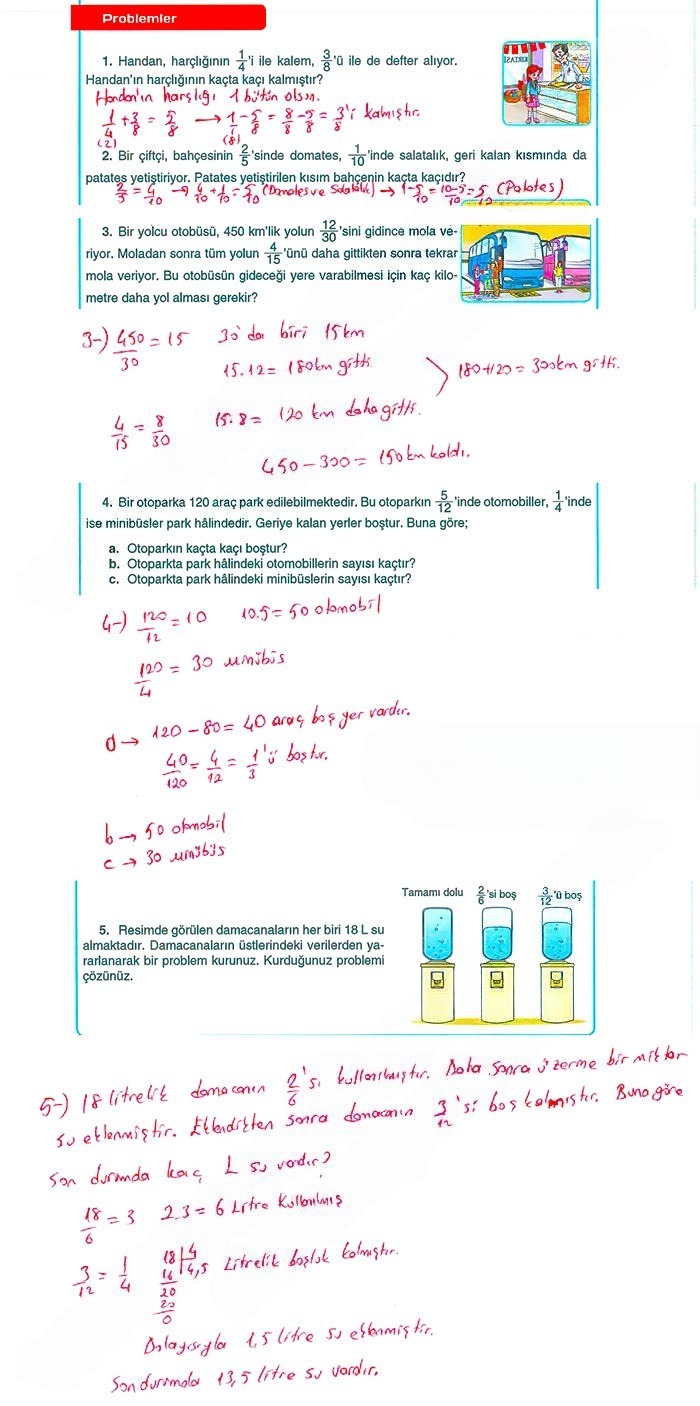 Problemler
1. Handan, harçlığının 1/4'i ile kalem, 3/8'ü ile de defter alıyor.
Handan'ın harçlığının kaçta kaçı kalmıştır?
KIRTASİ
Handan'ın harçlığı 1 bütün olsun.
1/4 + 3/8 = 5/8 → 1/1 - 5/8 = 8/8 - 5/8 = 3/8'i kalmıştır.
(2) (8)
2. Bir çiftçi, bahçesinin 2/5'sinde domates, 1/10'inde salatalık, geri kalan kısmında da
patates yetiştiriyor. Patates yetiştirilen kısım bahçenin kaçta kaçıdır?
2/5 = 4/10 → 4/10 + 1/10 = 5/10 (Domates ve Salatalık) → 1 - 5/10 = 10-5/10 = 5/10 (Patates)
3. Bir yolcu otobüsü, 450 km'lik yolun 12/30'sini gidince mola ve-
riyor. Moladan sonra tüm yolun 4/15'ünü daha gittikten sonra tekrar
mola veriyor. Bu otobüsün gideceği yere varabilmesi için kaç kilo-
metre daha yol alması gerekir?
3-) 450/30 = 15 30'da biri 15 km
15.12 = 180 km gitti.
180+120 = 300 km gitti.
4/15 = 8/30 15.8 = 120 km daha gitti.
450 - 300 = 150 km kaldı.
4. Bir otoparka 120 araç park edilebilmektedir. Bu otoparkın 5/12'inde otomobiller, 1/4'inde
ise minibüsler park hâlindedir. Geriye kalan yerler boştur. Buna göre;
a. Otoparkın kaçta kaçı boştur?
b. Otoparkta park hâlindeki otomobillerin sayısı kaçtır?
c. Otoparkta park hâlindeki minibüslerin sayısı kaçtır?
4-) 120/12 = 10 10.5 = 50 otomobil
120/4 = 30 minibüs
a → 120 - 80 = 40 araç boş yer vardır.
40/120 = 4/12 = 1/3'ü boştur.
b → 50 otomobil
c → 30 minibüs
Tamamı dolu 2/6'si boş 3/12'ü boş
5. Resimde görülen damacanaların her biri 18 L su
almaktadır. Damacanaların üstlerindeki verilerden ya-
rarlanarak bir problem kurunuz. Kurduğunuz problemi
çözünüz.
5-) 18 litrelik damacanın 2/6'si kullanılmıştır. Daha sonra üzerine bir miktar
su eklenmiştir. Eklendikten sonra damacanın 3/12'si boş kalmıştır. Buna göre
son durumda kaç L su vardır?
18/6 = 3 2.3 = 6 Litre Kullanılmış
3/12 = 1/4 18 | 4
16 4,5 Litrelik boşluk kalmıştır.
20
20
0
Dolayısıyla 1,5 litre su eklenmiştir.
Son durumda 13,5 litre su vardır.